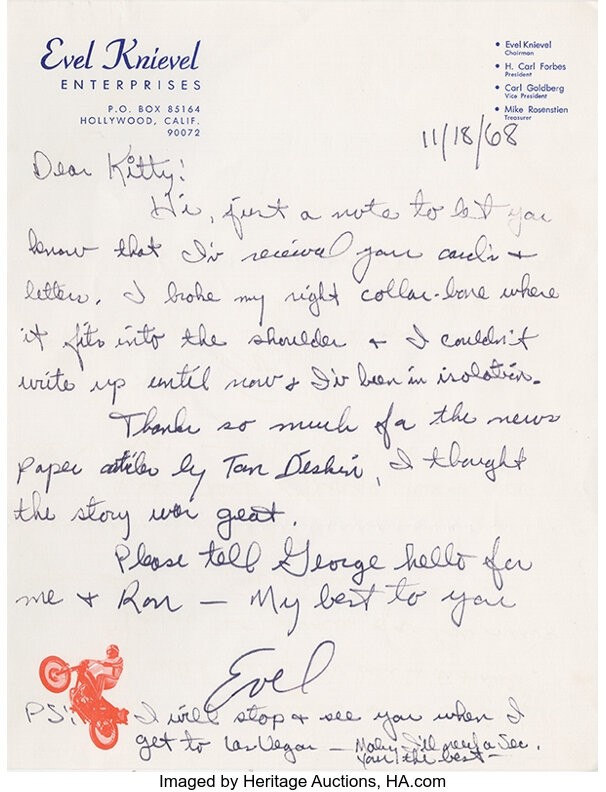 Evel Knievel
ENTERPRISES
P.O. BOX 85164
HOLLYWOOD, CALIF.
90072
• Evel Knievel
Chairman
• H. Carl Forbes
President
• Carl Goldberg
Vice President
• Mike Rosenstien
Treasurer
11/18/68
Dear Kitty!
Hi, just a note to let you
know that I'v received your cards &
letters. I broke my right collar-bone where
it fits into the shoulder & I couldn't
write up until now & I'v been in isolation.
Thanks so much for the news
paper by Tom Deskin, I thought
the story was great.
Please tell George hello for
me & Ron — My best to you
Evel
PS: I will stop & see you when I
get to Las Vegas — Maby I'll need a Sec.
Your the best —
Imaged by Heritage Auctions, HA.com